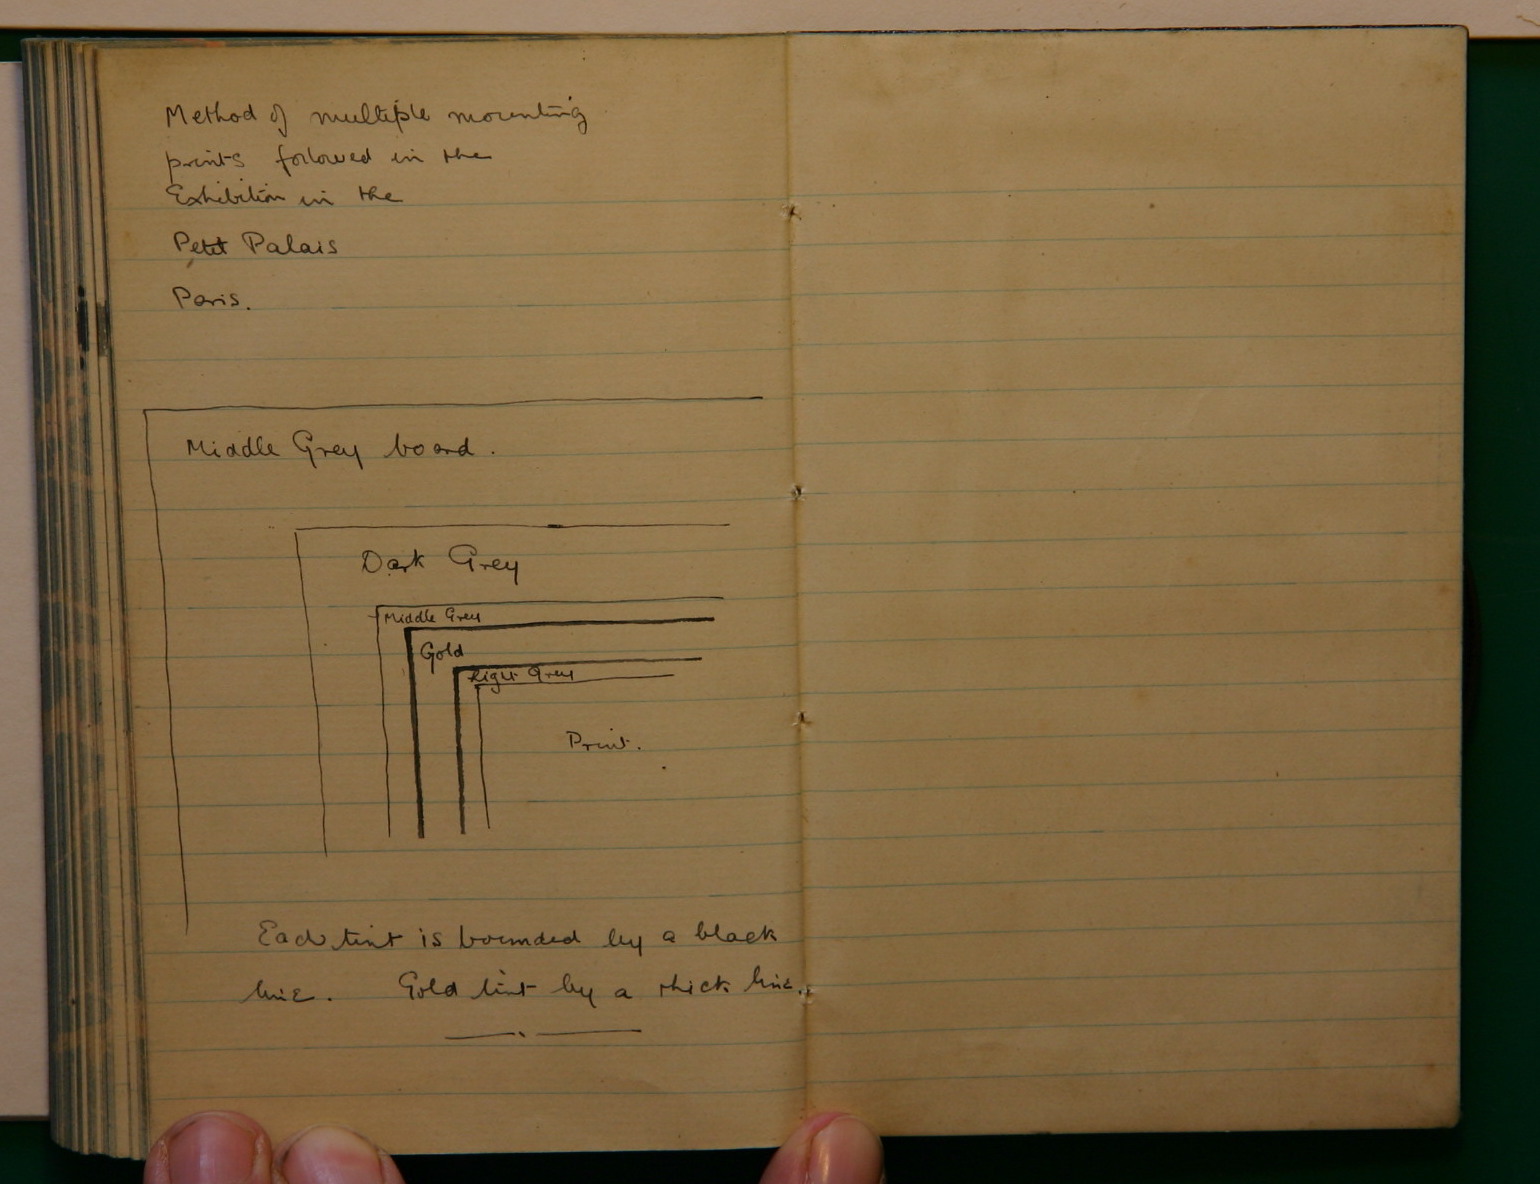 Method of multiple mounting
prints followed in the
Exhibition in the
Petit Palais
Paris.
Middle Grey board.
Dark Grey
Middle Grey
Gold
Light Grey
Print.
Each tint is bounded by a black
line. Gold tint by a thick line.